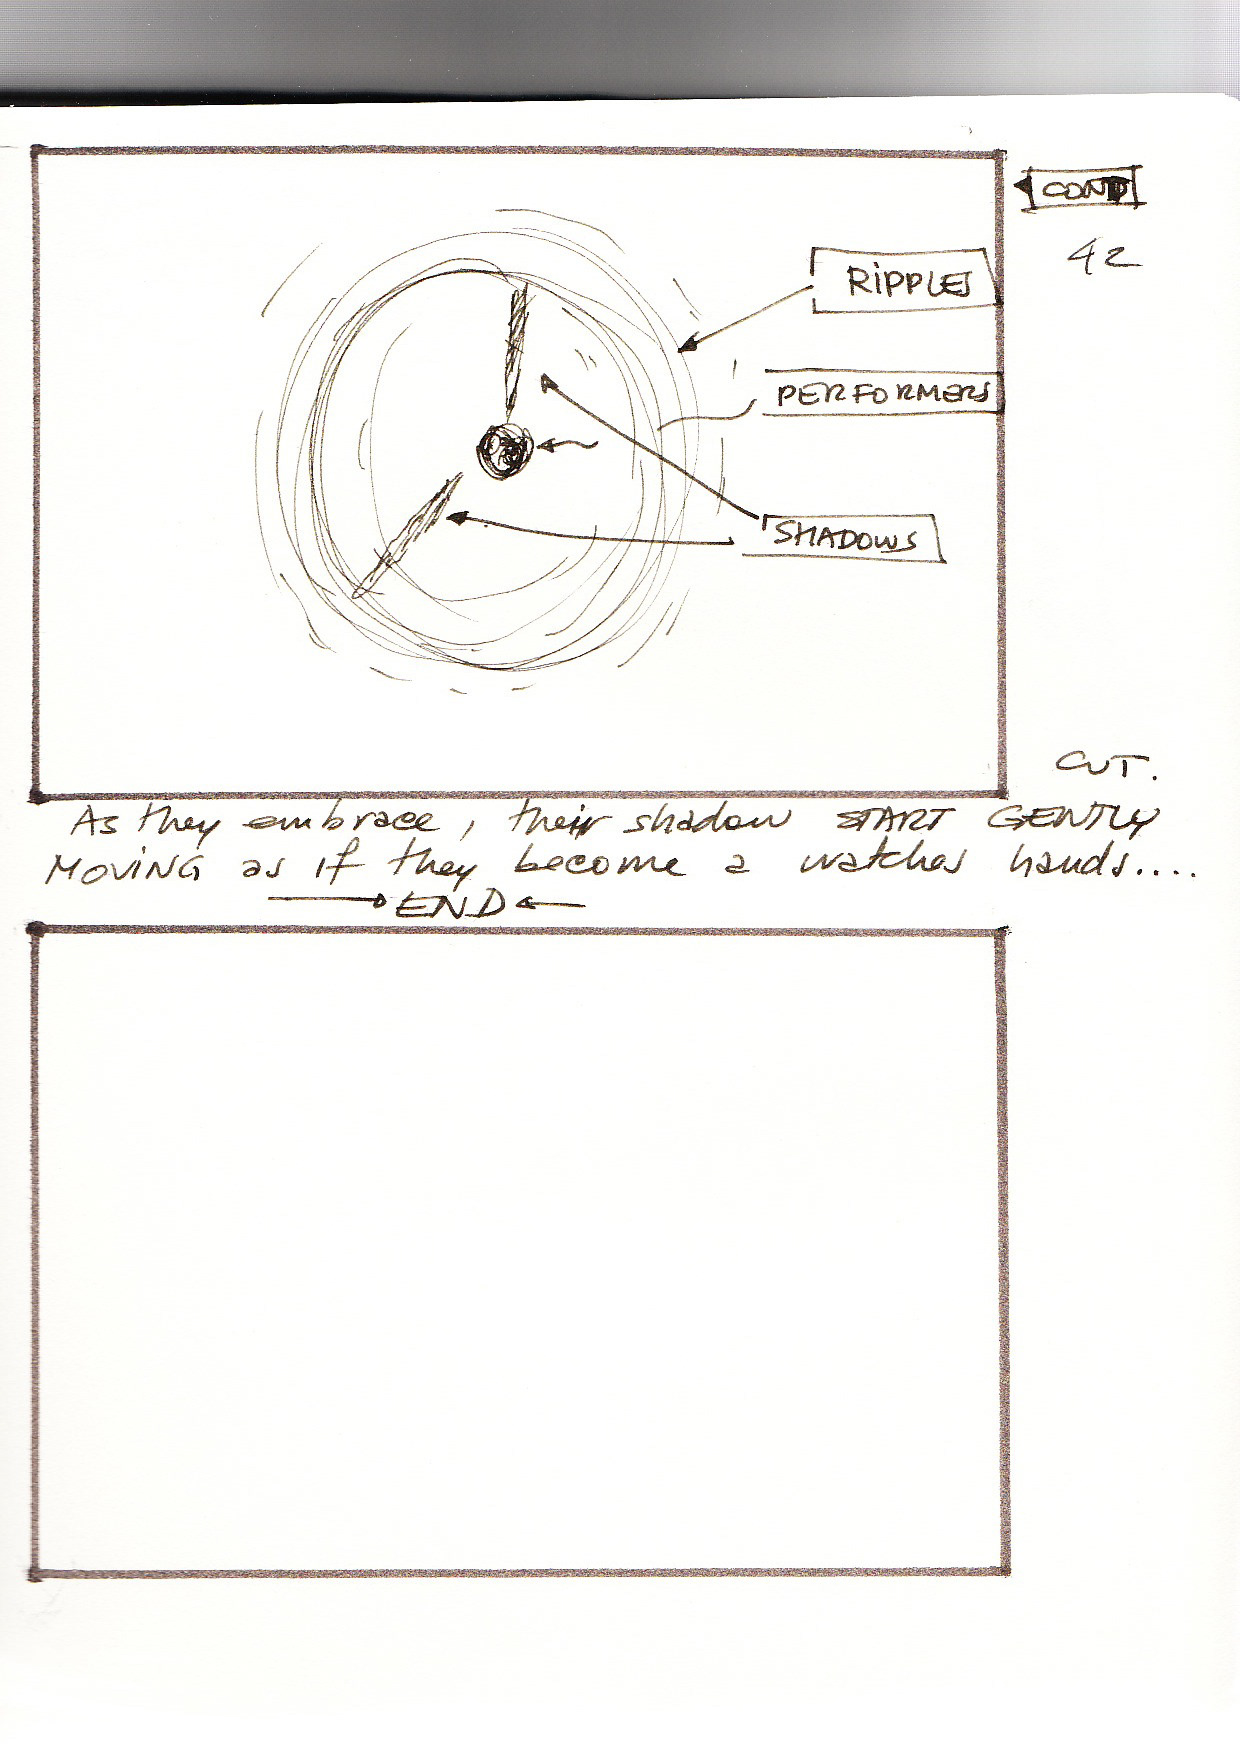 COND
42
RIPPLES
PERFORMERS
SHADOWS
CUT.
As they embrace, their shadow START GENTLY
MOVING as if they become a watches hands....
END